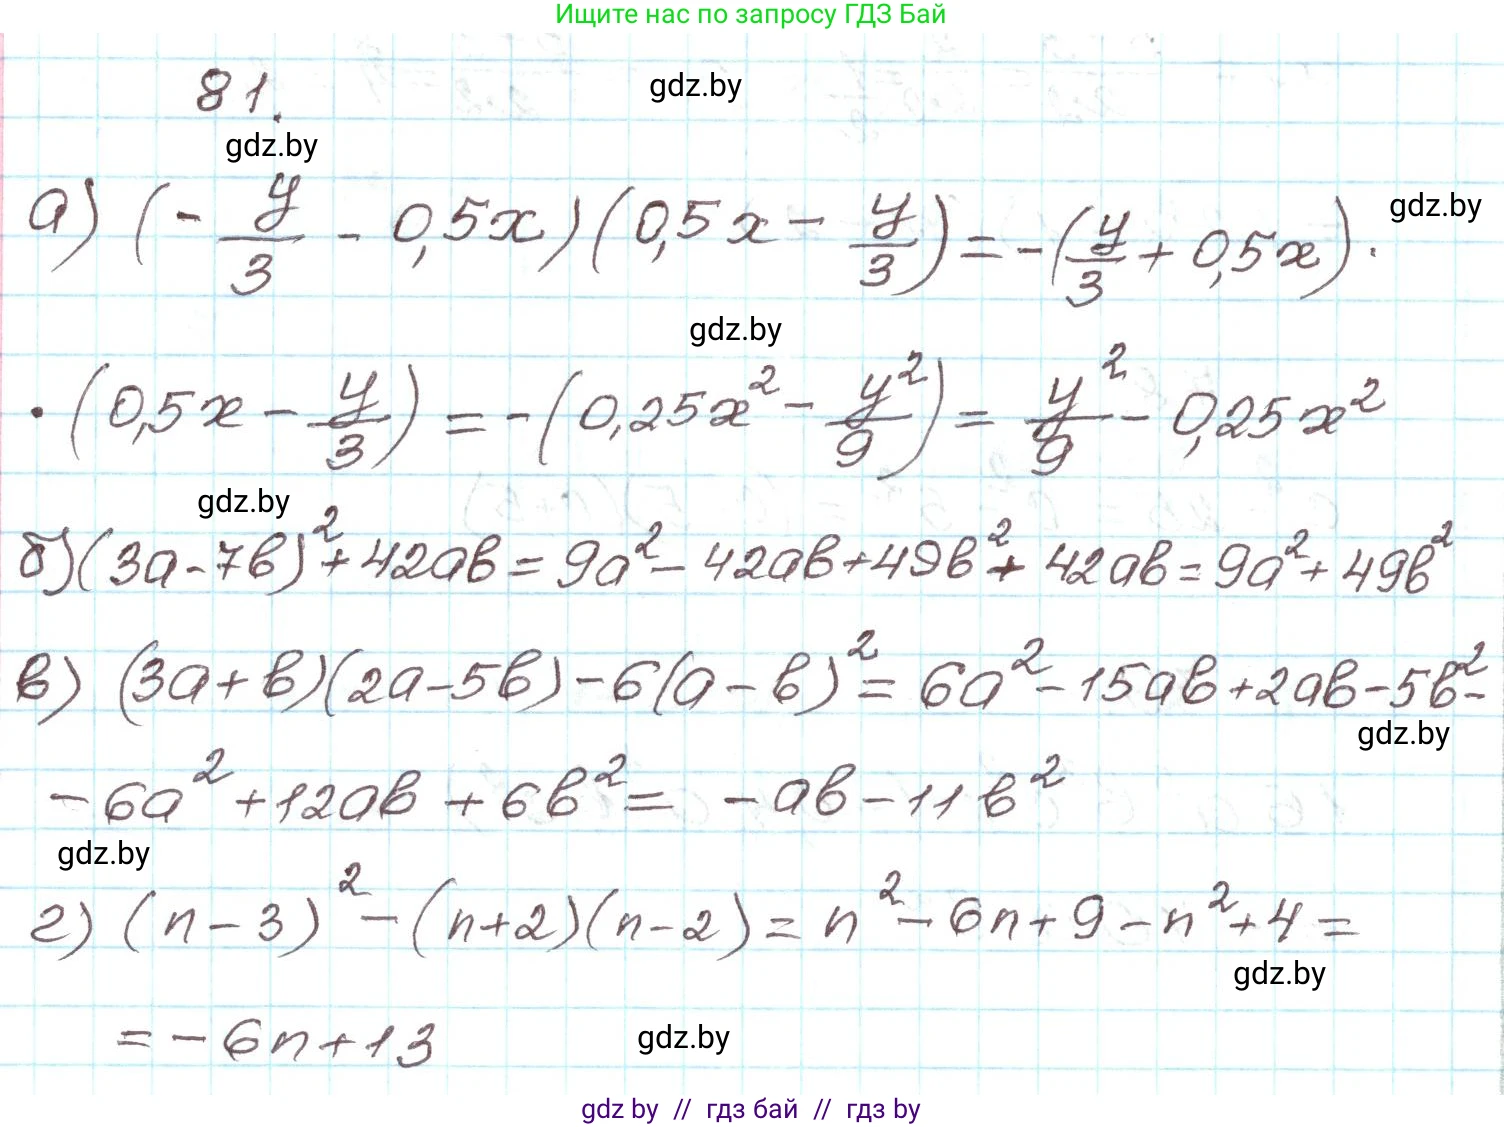 Ищите нас по запросу ГДЗ Бай
81.
gdz.by
gdz.by
а) (- y/3 - 0,5x)(0,5x - y/3) = -(y/3 + 0,5x) ·
gdz.by
gdz.by
· (0,5x - y/3) = -(0,25x² - y²/9) = y²/9 - 0,25x²
gdz.by
б) (3a-7b)² + 42ab = 9a² - 42ab + 49b² + 42ab = 9a² + 49b²
в) (3a+b)(2a-5b) - 6(a-b)² = 6a² - 15ab + 2ab - 5b² -
gdz.by
- 6a² + 12ab + 6b² = - ab - 11b²
gdz.by
г) (n-3)² - (n+2)(n-2) = n² - 6n + 9 - n² + 4 =
gdz.by
= - 6n + 13
gdz.by
gdz by // гдз бай // гдз by